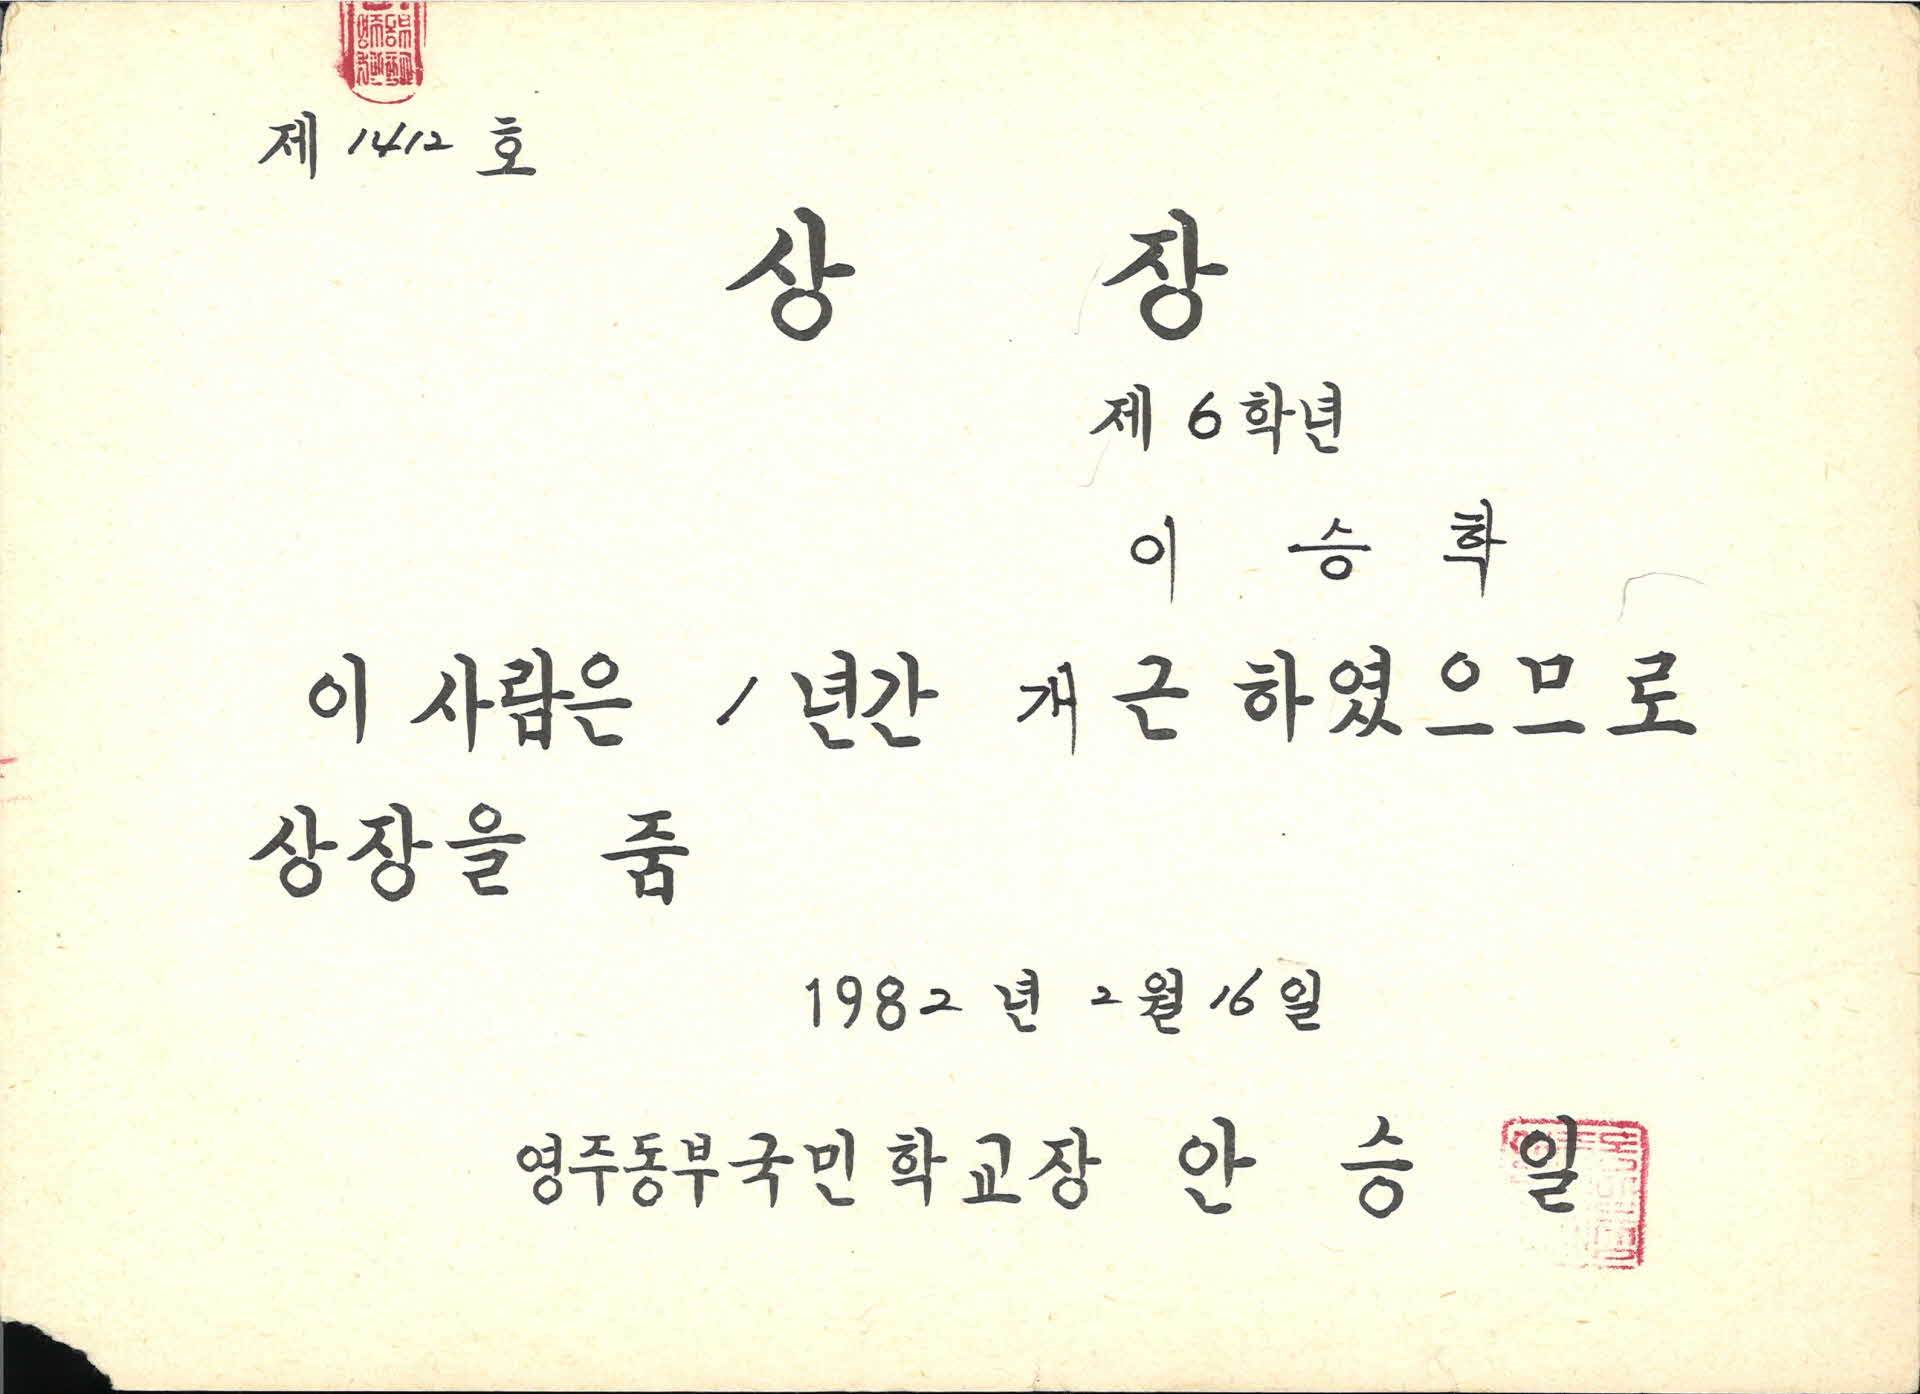 제 1412 호
상 장
제 6 학년
이 승 학
이 사람은 1 년간 개근 하였으므로
상장을 줌
1982 년 2 월 16 일
영주동부국민학교장 안 승 일